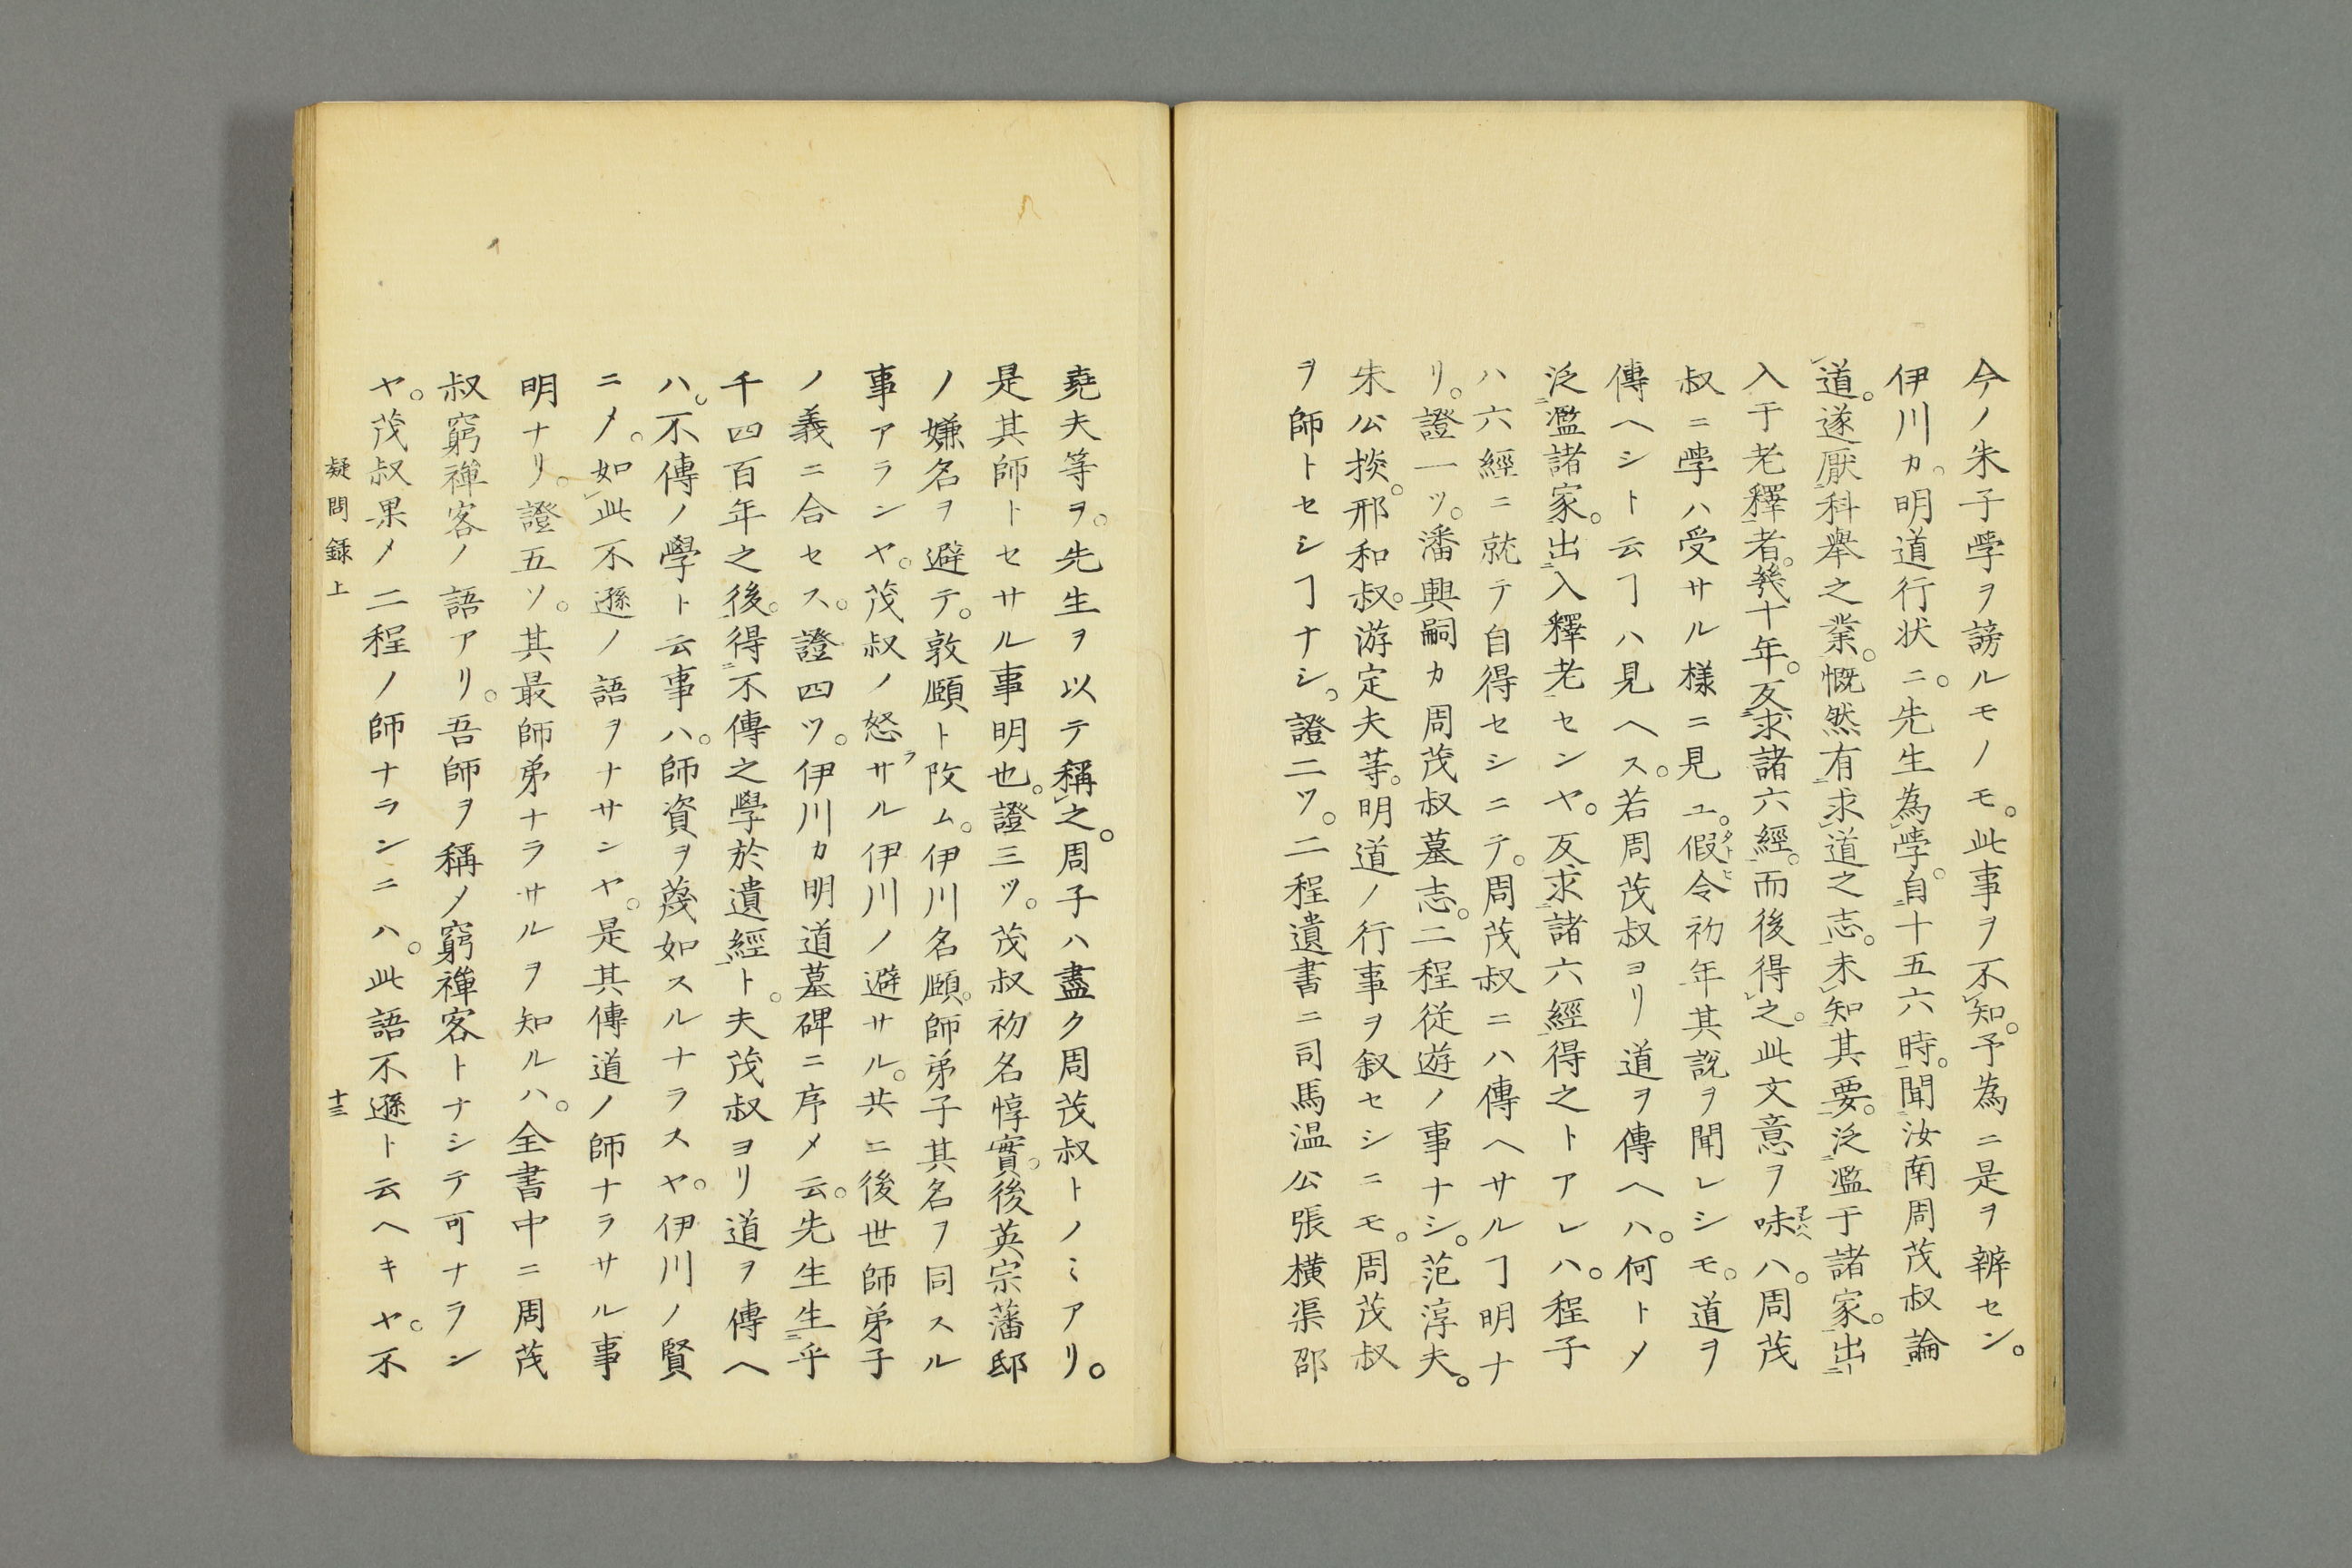 今ノ朱子學ヲ謗ルモノモ。此事ヲ不知。予為ニ是ヲ辨セン。
伊川カ。明道行状ニ。先生為學。自十五六時。聞汝南周茂叔論
道。遂厭科舉之業。慨然有求道之志。未知其要。泛濫于諸家。出
入于老釋者。幾十年。反求諸六經。而後得之。此文意ヲ味ハ。周茂
叔ニ學ハ受サル樣ニ見ユ。假令初年其説ヲ聞レシモ。道ヲ
傳ヘシト云ヿハ見ヘス。若周茂叔ヨリ道ヲ傳ヘハ。何トメ
泛濫諸家。出入釋老センヤ。反求諸六經得之トアレハ。程子
ハ六經ニ就テ自得セシニテ。周茂叔ニハ傳ヘサルヿ明ナ
リ。證一ツ。潘興嗣カ周茂叔墓志。二程従遊ノ事ナシ。范淳夫。
朱公掞。邢和叔。游定夫等。明道ノ行事ヲ叙セシニモ。周茂叔
ヲ師トセシヿナシ。證二ツ。二程遺書ニ司馬温公張横渠邵
堯夫等ヲ。先生ヲ以テ稱之。周子ハ盡ク周茂叔トノミアリ。
是其師トセサル事明也。證三ツ。茂叔初名惇實。後英宗藩邸
ノ嫌名ヲ避テ。敦頤ト改ム。伊川名頤。師弟子其名ヲ同スル
事アランヤ。茂叔ノ怒ラサル伊川ノ避サル。共ニ後世師弟子
ノ義ニ合セス。證四ツ。伊川カ明道墓碑ニ序メ云。先生生乎
千四百年之後。得不傳之學於遺經ト。夫茂叔ヨリ道ヲ傳ヘ
ハ。不傳ノ學ト云事ハ。師資ヲ蔑如スルナラスヤ。伊川ノ賢
ニメ。如此不遜ノ語ヲナサンヤ。是其傳道ノ師ナラサル事
明ナリ。證五ツ。其最師弟ナラサルヲ知ルハ。全書中ニ周茂
叔窮禪客ノ語アリ。吾師ヲ稱メ窮禪客トナシテ可ナラン
ヤ。茂叔果メ二程ノ師ナランニハ。此語不遜ト云ヘキヤ。不
疑問録上 十三